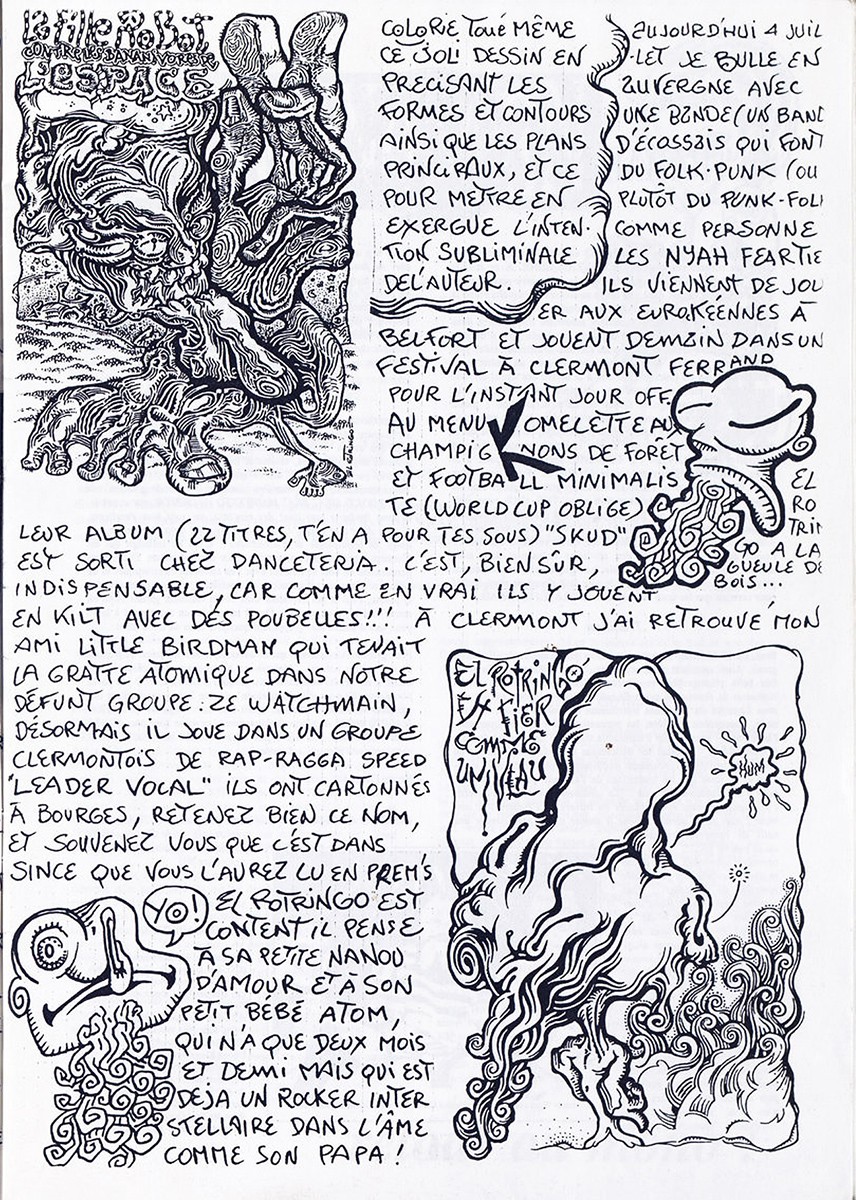 LA FILLE ROBOT
CONTRE LES DANANIVORES DE
L'ESPACE
COLORIE TOUÉ MÊME
CE JOLI DESSIN EN
PRECISANT LES
FORMES ET CONTOURS
AINSI QUE LES PLANS
PRINCIPAUX, ET CE
POUR METTRE EN
EXERGUE L'INTEN-
TION SUBLIMINALE
DE L'AUTEUR.
AUJOURD'HUI 4 JUIL
-LET JE BULLE EN
AUVERGNE AVEC
UNE BANDE (UN BAND
D'ÉCOSSAIS QUI FONT
DU FOLK-PUNK (OU
PLUTÔT DU PUNK-FOLK
COMME PERSONNE
LES NYAH FEARTIE
ILS VIENNENT DE JOU
ER AUX EUROKÉENNES À
BELFORT ET JOUENT DEMAIN DANS UN
FESTIVAL À CLERMONT FERRAND
POUR L'INSTANT JOUR OFF.
AU MENU OMELETTE AUX
CHAMPIGNONS DE FORÊT
ET FOOTBALL MINIMALIS
TE (WORLD CUP OBLIGE)
EL
RO
TRIN
GO A LA
GUEULE DE
BOIS...
LEUR ALBUM (22 TITRES, T'EN A POUR TES SOUS) "SKUD"
EST SORTI CHEZ DANCETERIA. C'EST, BIEN SÛR,
INDISPENSABLE, CAR COMME EN VRAI ILS Y JOUENT
EN KILT AVEC DES POUBELLES!!! À CLERMONT J'AI RETROUVÉ MON
AMI LITTLE BIRDMAN QUI TENAIT
LA GRATTE ATOMIQUE DANS NOTRE
DÉFUNT GROUPE: ZE WATCHMAIN,
DÉSORMAIS IL JOUE DANS UN GROUPE
CLERMONTOIS DE RAP-RAGGA SPEED
"LEADER VOCAL" ILS ONT CARTONNÉS
À BOURGES, RETENEZ BIEN CE NOM,
ET SOUVENEZ VOUS QUE C'EST DANS
SINCE QUE VOUS L'AUREZ LU EN PREM'S
YO!
EL ROTRINGO EST
CONTENT IL PENSE
À SA PETITE NANOU
D'AMOUR ET À SON
PETIT BÉBÉ ATOM,
QUI N'A QUE DEUX MOIS
ET DEMI MAIS QUI EST
DEJA UN ROCKER INTER
STELLAIRE DANS L'ÂME
COMME SON PAPA!
EL ROTRINGO
EX FIER
COMME
UN VEAU
HUM